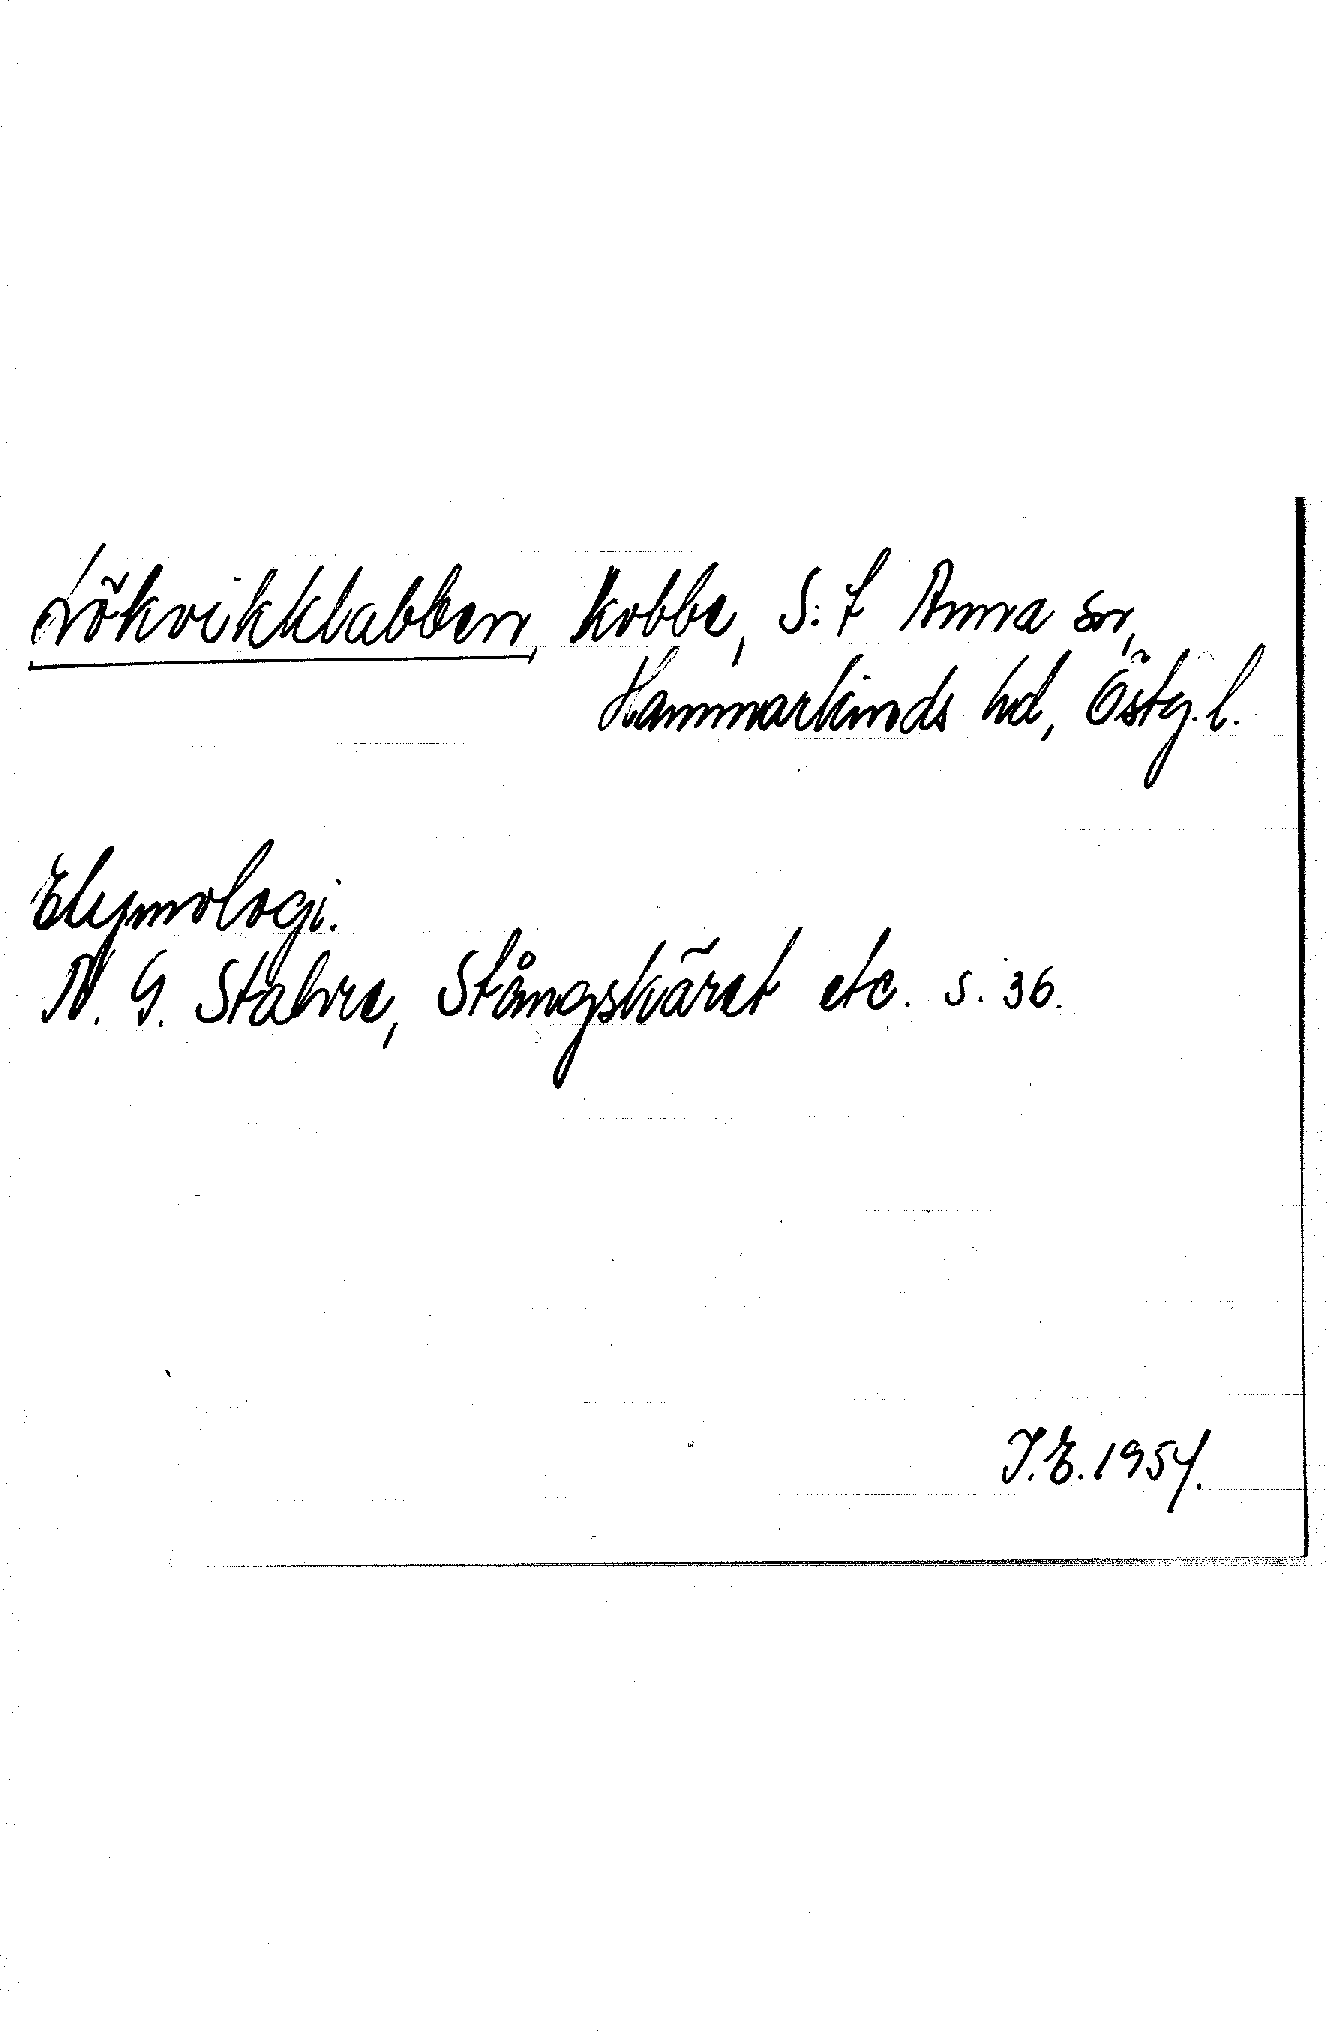 Lökvikklabben, kobbe, S:t Anna sn,
Hammarkinds hd, Östg. l.
Etymologi.
N. G. Stahre, Stångskäret etc. s. 36.
I. E. 1954.